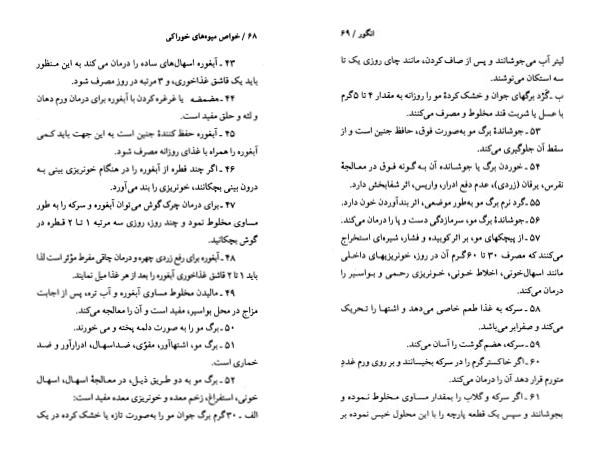 ۶۸ / خواص میوه‌های خوراکی
۴۳ ـ آبغوره اسهال‌های ساده را درمان می کند به این منظور
باید یک قاشق غذاخوری، و ۳ مرتبه در روز مصرف شود.
۴۴ ـ مضمضه یا غرغره کردن با آبغوره برای درمان ورم دهان
و لثه و حلق مفید است.
۴۵ ـ آبغوره حفظ کنندهٔ جنین است به این جهت باید کمی
آبغوره را همراه با غذای روزانه مصرف شود.
۴۶ ـ اگر چند قطره از آبغوره را در هنگام خونریزی بینی به
درون بینی بچکانند، خونریزی را بند می‌آورد.
۴۷ ـ برای درمان چرک گوش می‌توان آبغوره و سرکه را به طور
مساوی مخلوط نمود و چند روز، روزی سه مرتبه ۱ تا ۲ قطره در
گوش بچکانید.
۴۸ ـ آبغوره برای رفع زردی چهره و درمان چاقی مفرط مؤثر است لذا
باید ۱ تا ۲ قاشق غذاخوری آبغوره را بعد از هر غذا میل نمایند.
۴۹ ـ مالیدن مخلوط مساوی آبغوره و آب تره، پس از اجابت
مزاج در محل بواسیر، مفید است و آن را معالجه می‌کند.
۵۰ ـ برگ مو را به صورت دلمه پخته و می خورند.
۵۱ ـ برگ مو، اشتهاآور، مقوّی، ضداسهال، ادرارآور و ضد
خماری است.
۵۲ ـ برگ مو به دو طریق ذیل، در معالجهٔ اسهال، اسهال
خونی، استفراغ، زخم معده و خونریزی معده مفید است:
الف ـ ۳۰گرم برگ جوان مو را به‌صورت تازه یا خشک کرده در یک
انگور / ۶۹
لیتر آب می‌جوشانند و پس از صاف کردن، مانند چای روزی یک تا
سه استکان می‌نوشند.
ب ـ گَرْد برگهای جوان و خشک کردهٔ مو را روزانه به مقدار ۴ تا ۵گرم
با عسل یا شربت قند مخلوط و مصرف می‌کنند.
۵۳ ـ جوشاندهٔ برگ مو به‌صورت فوق، حافظ جنین است و از
سقط آن جلوگیری می‌کند.
۵۴ ـ خوردن برگ یا جوشانده آن به گونه فوق در معالجهٔ
نقرس، یرقان (زردی)، عدم دفع ادرار، واریس، اثر شفابخش دارد.
۵۵ ـ گرد نرم برگ مو به‌طور موضعی، اثر بندآوردن خون دارد.
۵۶ ـ جوشاندهٔ برگ مو، سرمازدگی دست و پا را درمان می‌کند.
۵۷ ـ از پیچکهای مو، بر اثر کوبیده و فشار، شیره‌ای استخراج
می‌کنند که مصرف ۳۰ تا ۶۰گرم آن در روز، خونریزیهای داخلی
مانند اسهال‌خونی، اخلاط خونی، خونریزی رحمی و بواسیر را
درمان می‌کند.
۵۸ ـ سرکه به غذا طعم خاصی می‌دهد و اشتها را تحریک
می‌کند و صفرابر می‌باشد.
۵۹ ـ سرکه، هضم‌گوشت را آسان می‌کند.
۶۰ ـ اگر خاکسترگرم را در سرکه بخیسانند و بر روی ورم غددِ
متورم قرار دهد آن را درمان می‌کند.
۶۱ ـ اگر سرکه و گلاب را بمقدار مساوی مخلوط نموده و
بجوشانند و سپس یک قطعه پارچه را با این محلول خیس نموده بر